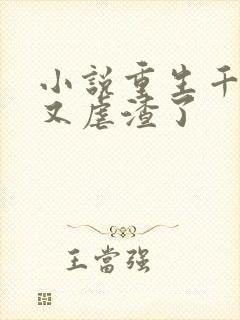 小說重生千
又虐渣了
王當强